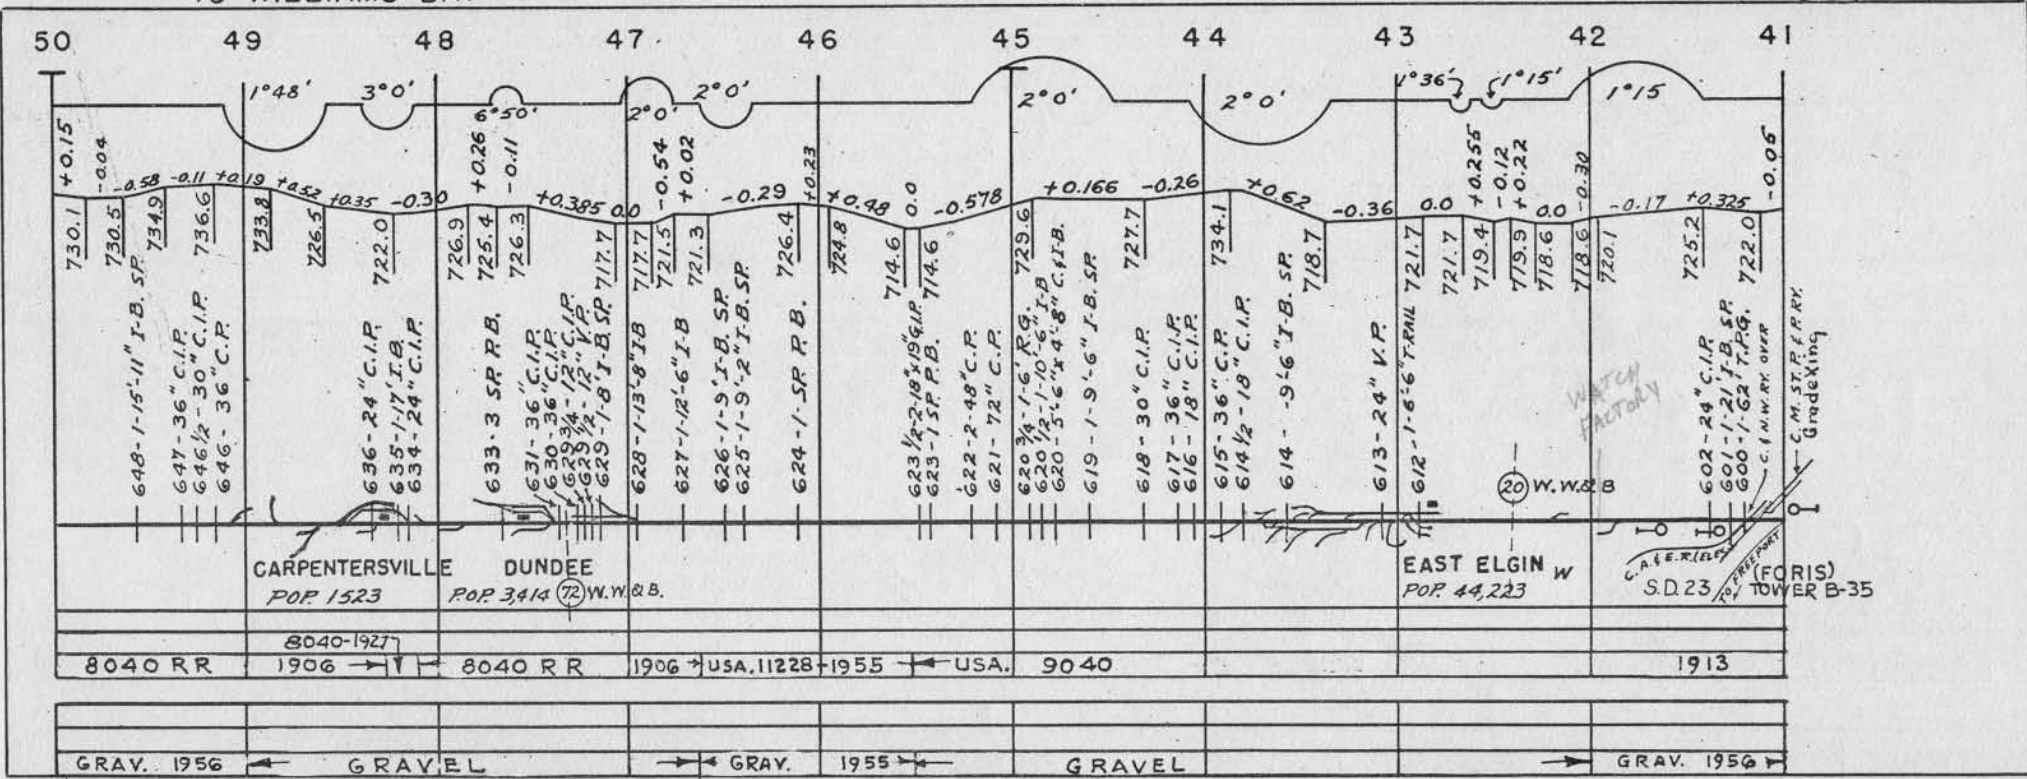 50 49 48 47 46 45 44 43 42 41
1°48' 3°0' 6°50' 2°0' 2°0' 2°0' 2°0' 1°36' 1°15' 1°15
+0.15 -0.04 -0.58 -0.11 +0.19 +0.52 +0.35 -0.30 +0.26 -0.11 +0.385 0.0 -0.54 +0.02 -0.29 +0.23 +0.48 0.0 -0.578 +0.166 -0.26 +0.62 -0.36 0.0 +0.255 -0.12 +0.22 0.0 -0.30 -0.17 +0.325 -0.05
730.1 730.5 734.9 736.6 733.8 726.5 722.0 726.9 725.4 726.3 717.7 717.7 721.5 721.3 726.4 724.8 714.6 714.6 729.6 727.7 734.1 718.7 721.7 721.7 719.4 719.9 718.6 718.6 720.1 725.2 722.0
648-1-15'-11" I-B. SP.
647-36" C.I.P.
646½-30" C.I.P.
646-36" C.P.
636-24" C.I.P.
635-1-17' I.B.
634-24" C.I.P.
633-3 SP. P.B.
631-36" C.I.P.
630-36" C.I.P.
629¾-12" C.I.P.
629½-12" V.P.
629-1-8' I-B. SP.
628-1-13'-8" I-B
627-1-12'-6" I-B
626-1-9' I-B. SP.
625-1-9'-2" I-B. SP.
624-1-SP. P.B.
623½-2-18"x19' G.I.P.
623-1 SP. P.B.
622-2-48" C.P.
621-72" C.P.
620¾-1-6' R.G.
620½-1-10'-6" I-B
620-5'6"x4'-8" C.& I-B.
619-1-9'-6" I-B. SP.
618-30" C.I.P.
617-36" C.I.P.
616-18" C.I.P.
615-36" C.P.
614½-18" C.I.P.
614- -9'-6" I-B. SP.
613-24" V.P.
612-1-6'-6" T-RAIL
WATCH
FACTORY
602-24" C.I.P.
601-1-21' I-B. SP.
600-1-62' T.P.G.
C.& N.W.RY. OVER
C. M. ST. P. & P. RY.
Gradexing
20 W.W.& B
CARPENTERSVILLE
POP. 1523
DUNDEE
POP. 3,414 72 W.W.& B.
EAST ELGIN W
POP. 44,223
C.A.& E.R.(ELEC
S.D. 23
TO FREEPORT
(FORIS)
TOWER B-35
8040-1927
8040 RR 1906 8040 RR 1906 USA. 11228-1955 USA. 9040 1913
GRAV. 1956 GRAVEL GRAV. 1955 GRAVEL GRAV. 1956